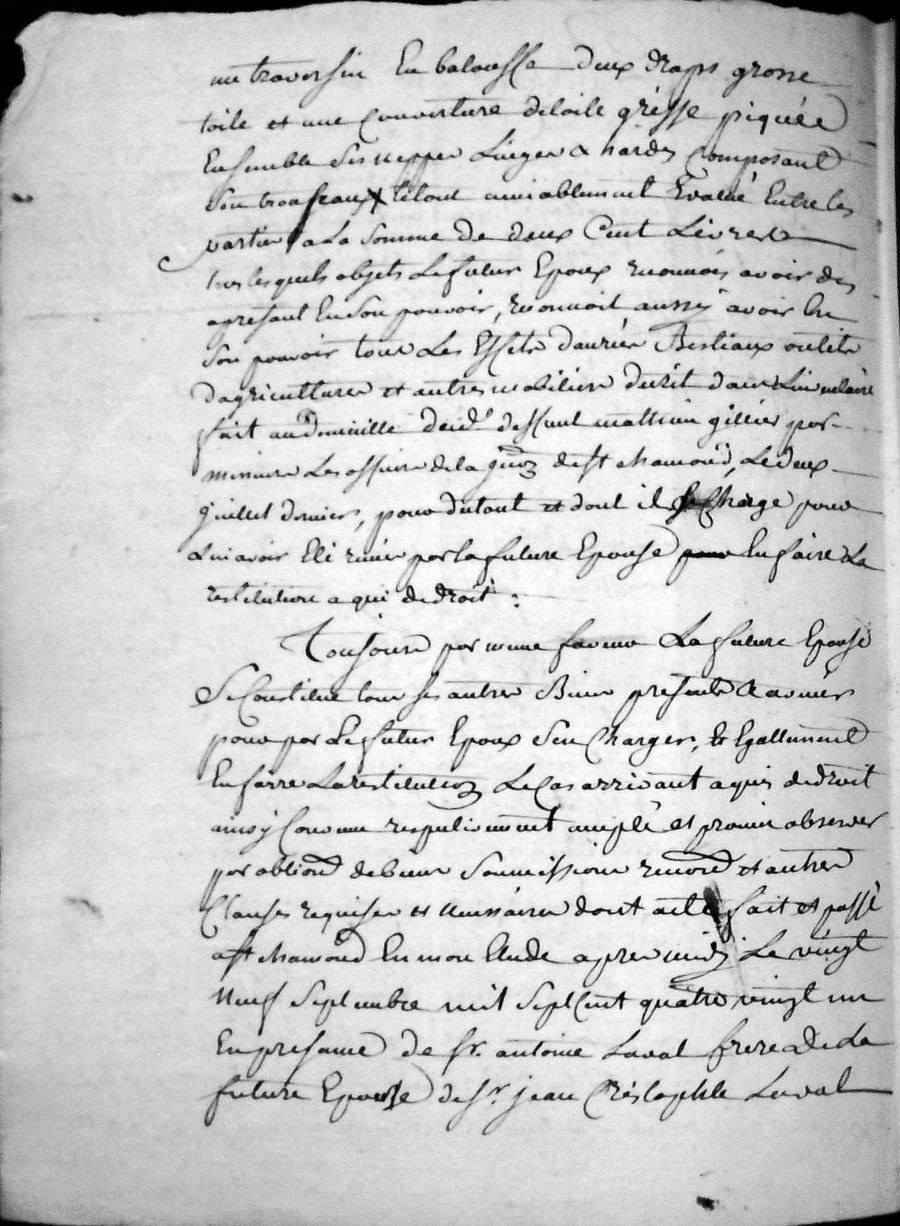 un traversin En balousse deux draps grosse
toile et une Couverture de toile grosse piquée
Ensemble ses nippes Linges & hardes Composant
son trousseaux letout amiablement Evalué Entre les
parties a La somme de deux Cent Livres
tous lesquels objets Le futur Epoux reconnois avoir des
apresant En son pouvoir, reconnoit aussi avoir En
son pouvoir tous Les Effets danrées Bestiaux outils
dagriculture et autres mobiliers decrit dans Linventaire
fait au Domicille deud. deffunt mathieu gillier par
ministere Les officiers de la de st chamond, Le deux
juillet dernier, pour du tout et dont il se Charge pour
Lui avoir Eté remis par la future Epouse pour En faire La
restitution a qui de droit :
Toujours par meme faveur La future Epouse
Se Constitue tous ses autres Biens presents & avenir
pour par Le futur Epoux s'en Charger, & Egallement
En faire La restitution Le Cas arrivant a qui de droit
ainsy Convenu respectivement accepté et promis observer
par obliond de biens Soumissions renond et autres
Clauses requises et necessaires dont acte fait et passé
a st chamond En mon Etude apres midy Le vingt
Neuf Septembre mil Sept Cent quatre vingt un
En presance de sr. antoine Laval frere de La
future Epouse de sr. jean Christophle Laval